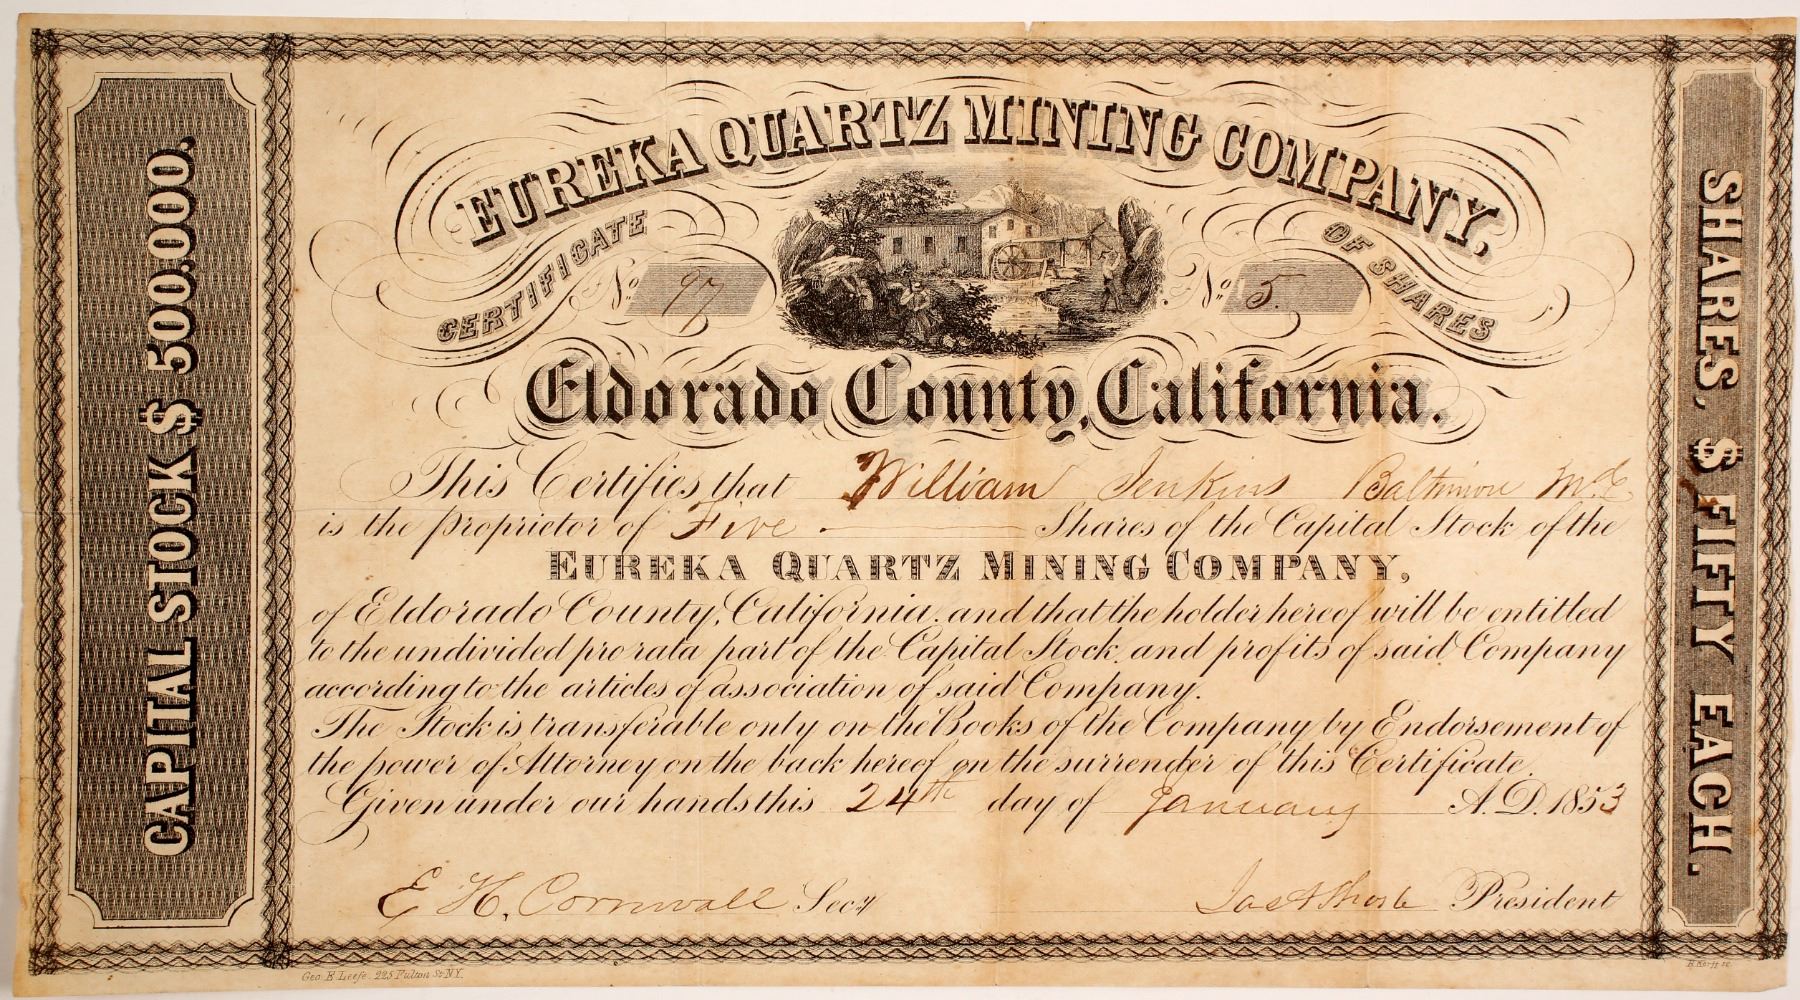 EUREKA QUARTZ MINING COMPANY,
CERTIFICATE OF SHARES
No. 97 No. 5.
Eldorado County, California.
CAPITAL STOCK $ 500.000.
SHARES, $ FIFTY EACH.
This Certifies that William Jenkins Baltimore Md.
is the proprietor of Five Shares of the Capital Stock of the
EUREKA QUARTZ MINING COMPANY,
of Eldorado County, California. and that the holder hereof will be entitled
to the undivided pro rata part of the Capital Stock. and profits of said Company
according to the articles of association of said Company.
The Stock is transferable only on the Books of the Company by Endorsement of
the power of Attorney on the back hereof on the surrender of this Certificate.
Given under our hands this 24th day of January A.D. 1853
E. H. Cornwall Secy President
Geo. E. Leefe. 225 Fulton St. N.Y.